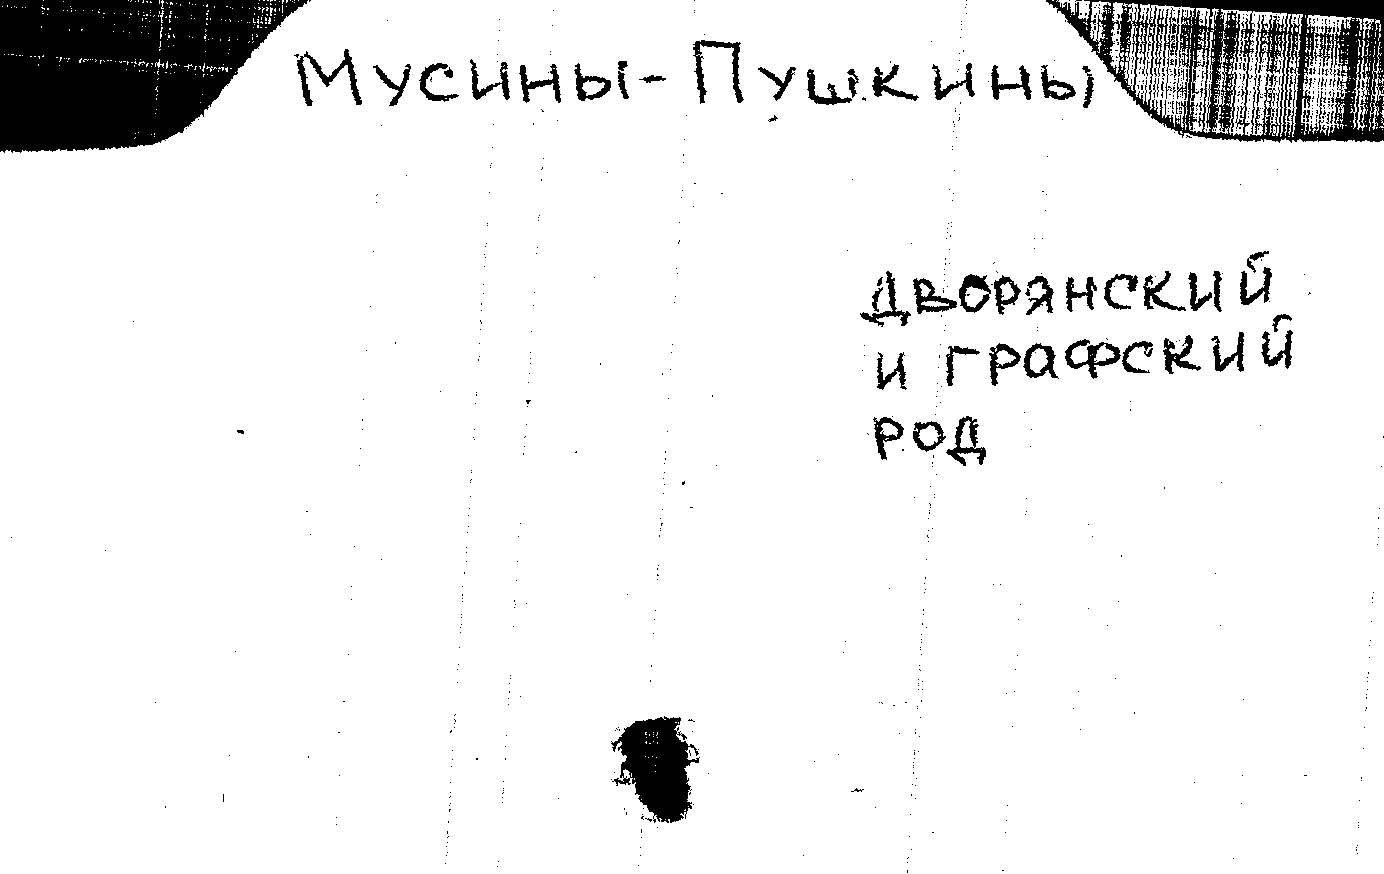 Мусины-Пушкины
дворянский
и графский
род